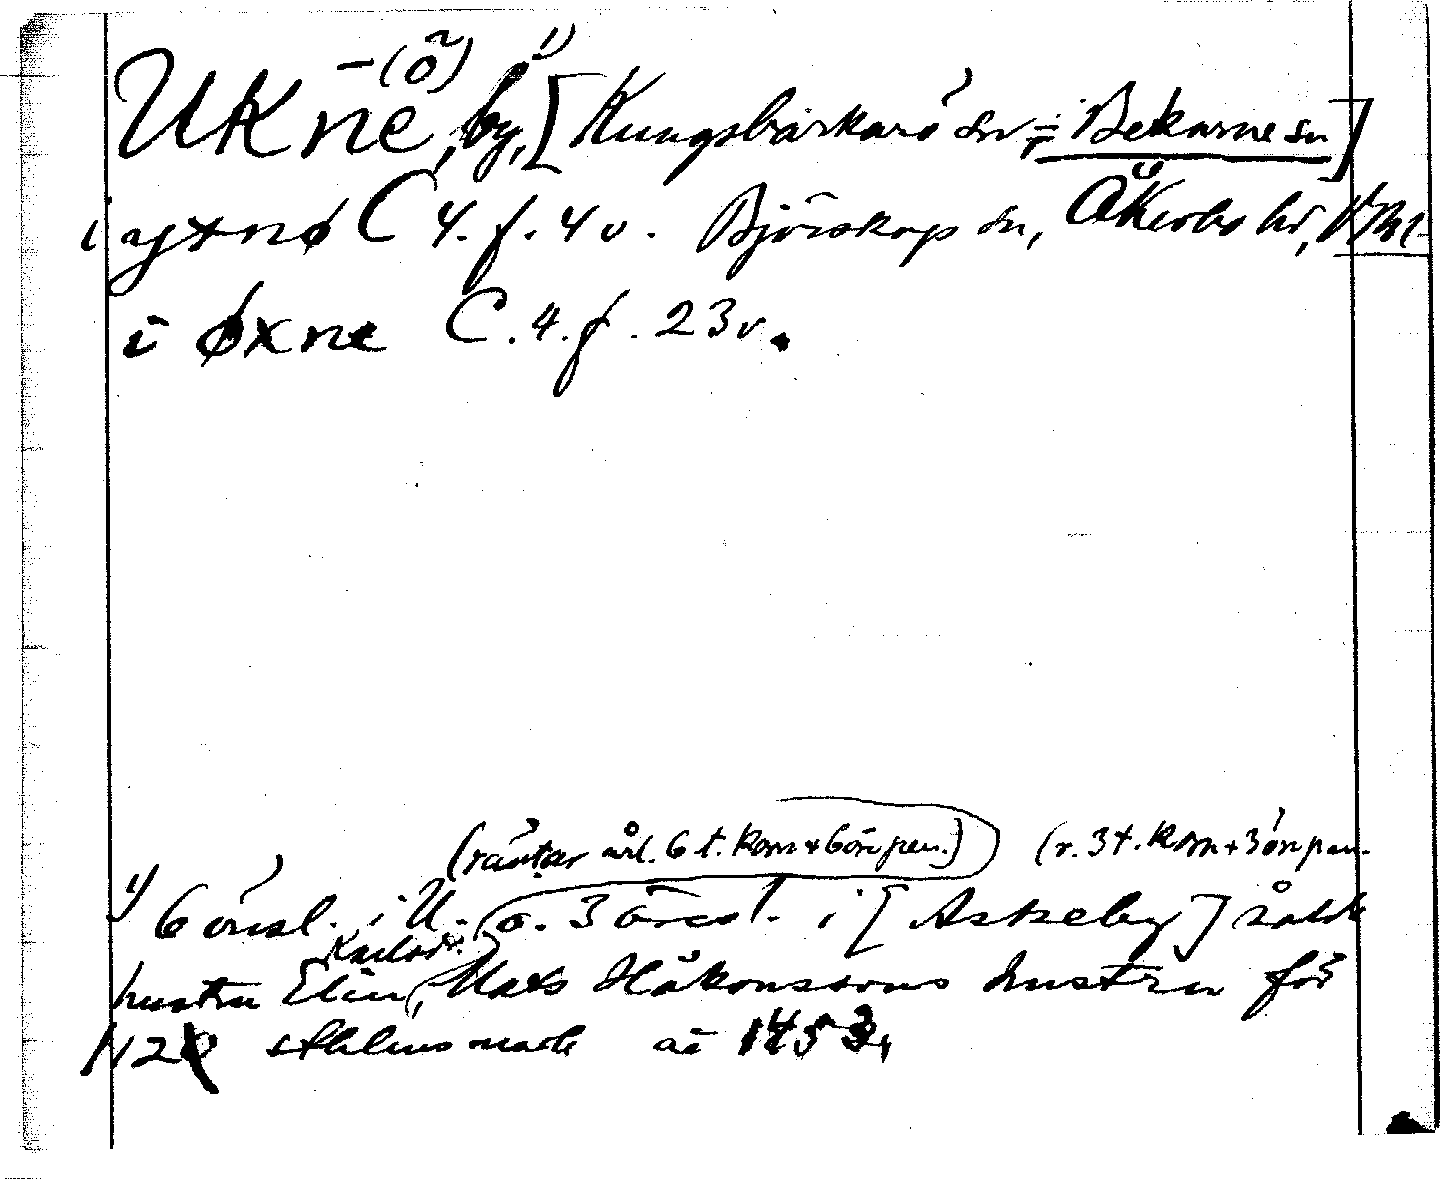 Ukne -(ö), by, 1) [Kungsbarkarö sn, = Bekarne sn]
i yxnø C 4. f. 4 v. Björskog sn, Åkerbo hd, Vml
i øxne C. 4. f. 23 v.
(räntar årl. 6 t. korn + 6 ör pen.) (r. 3 t. korn + 3 ör pen.
1) 6 örsl. i U. o. 3 öresl. i [Askeby] sålde
Karlsd.
hustru Elin, Mats Håkonssons hustru för
112 sthlms mark år 1453,